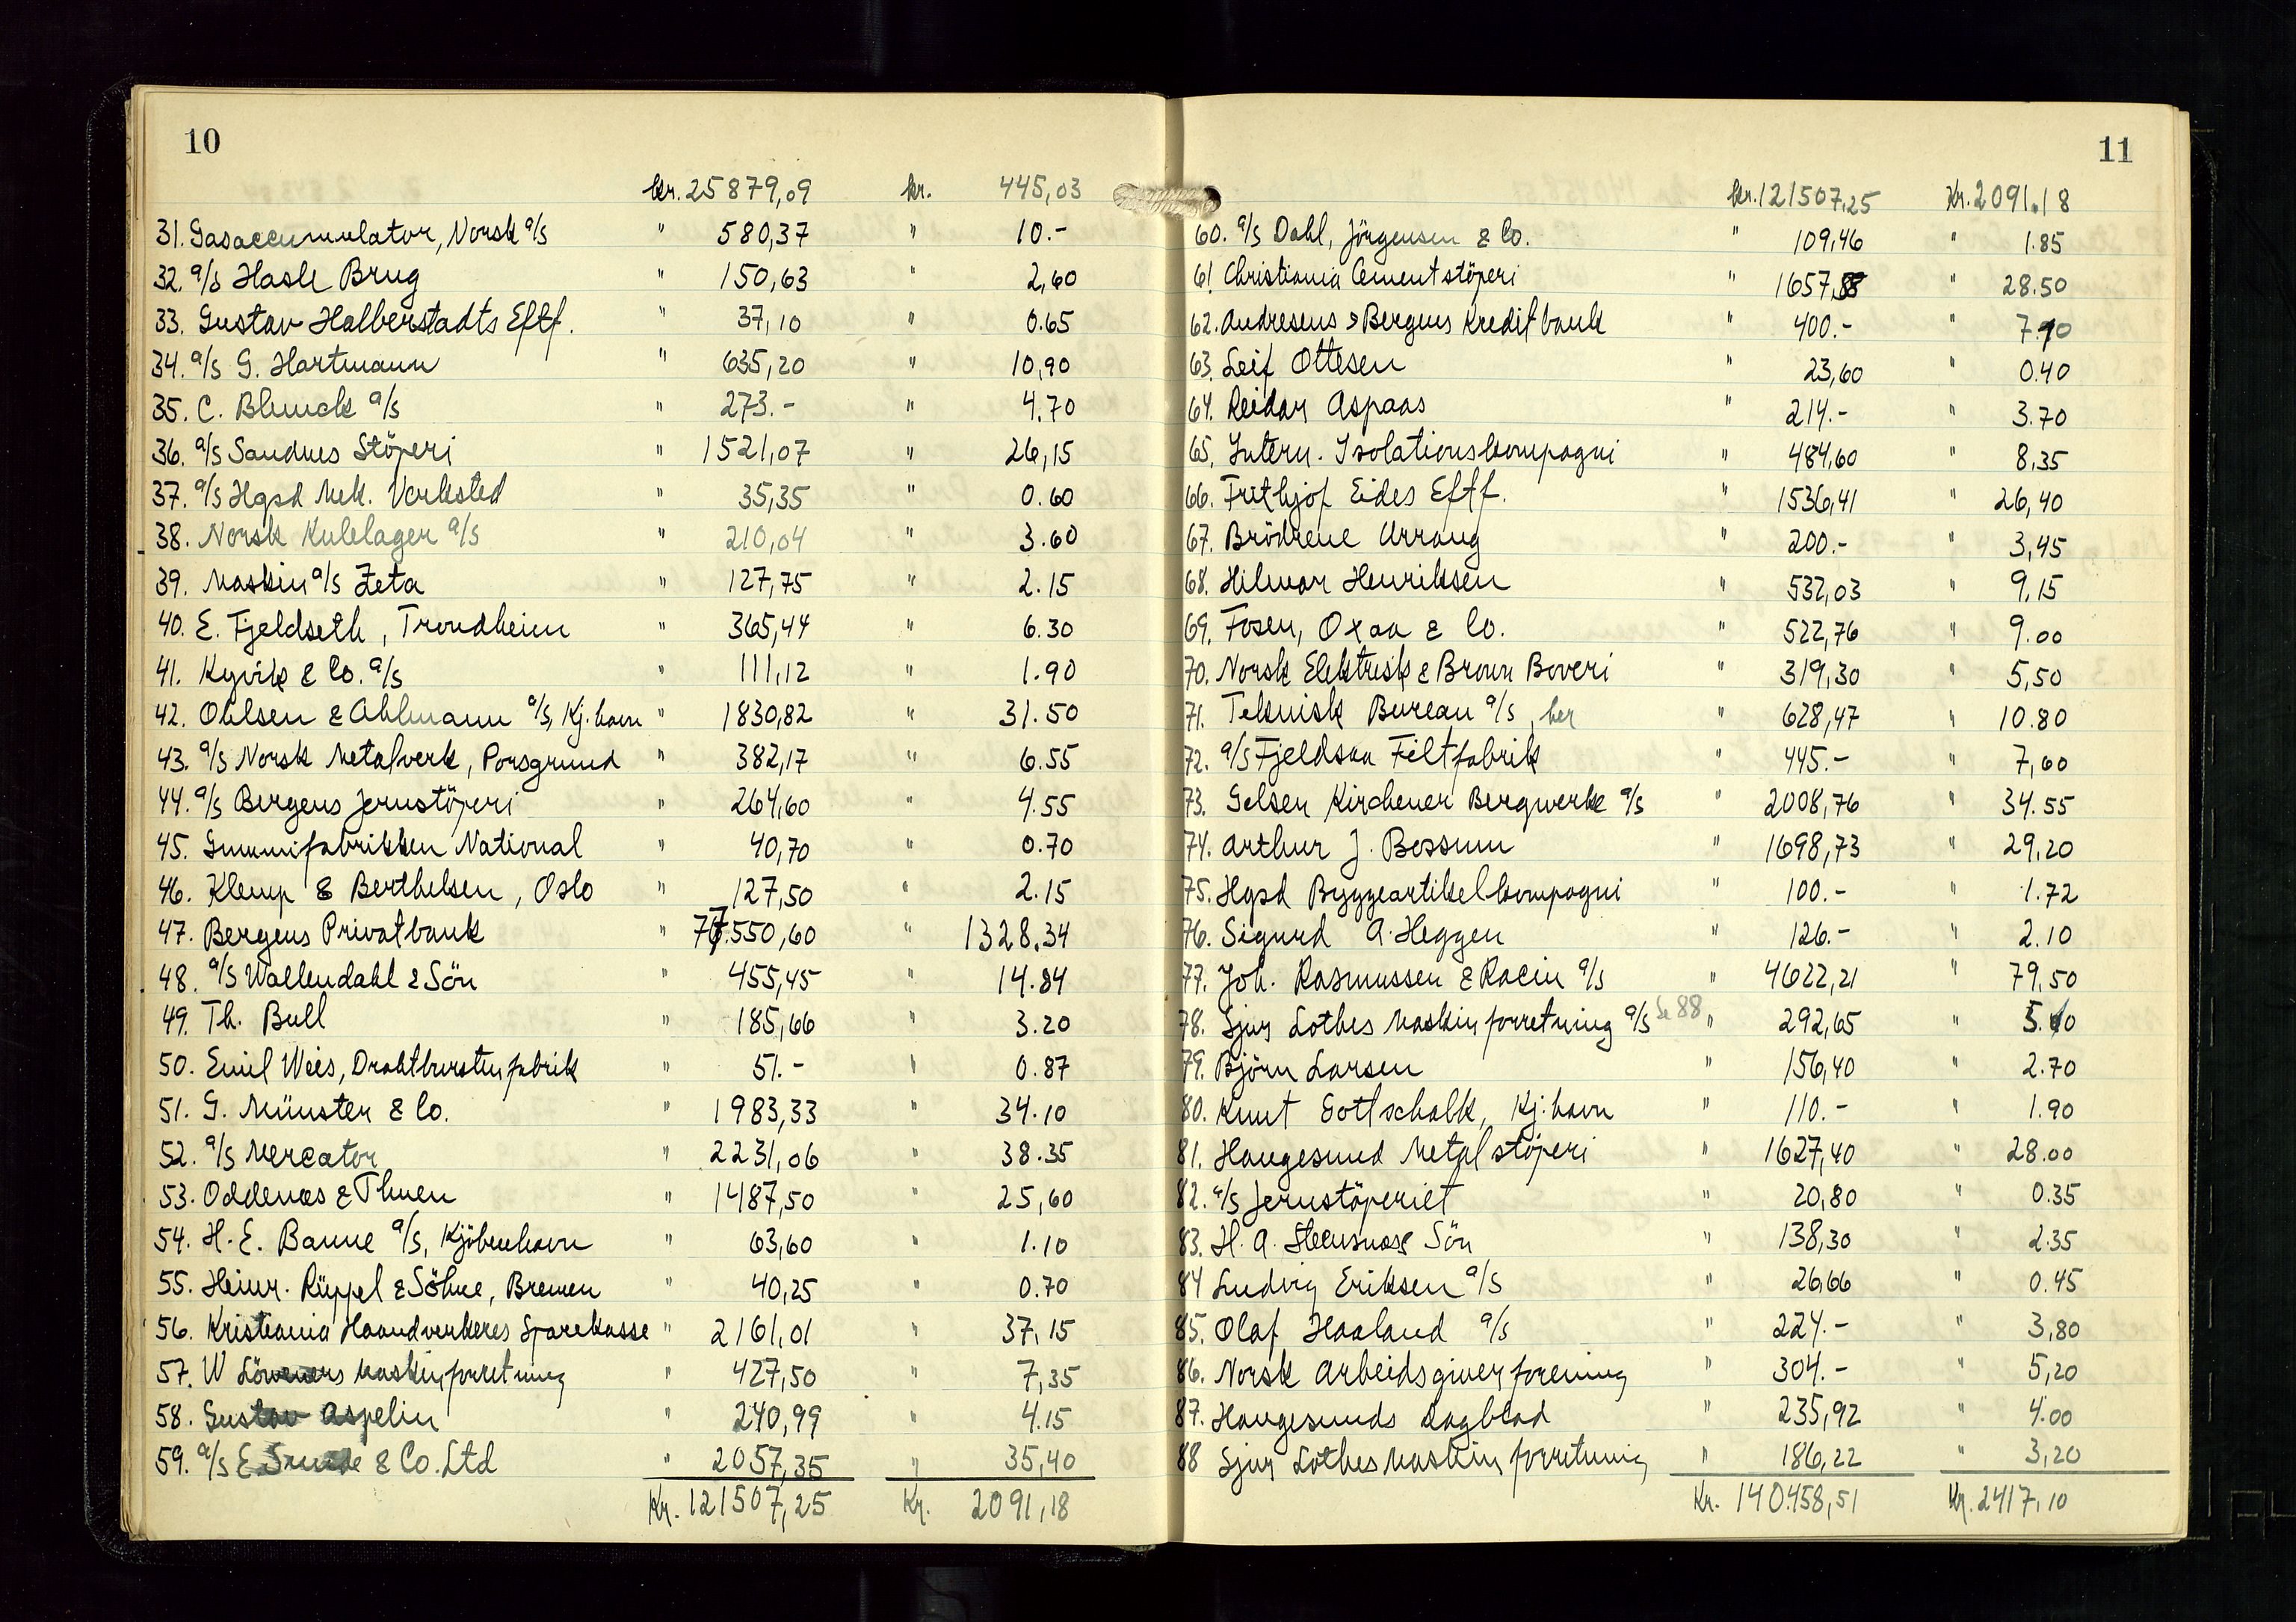 10
kr. 25879,09 kr. 445,03
31. Gasaccumulator, Norsk a/s " 580,37 " 10.-
32. a/s Hasle Brug " 150,63 " 2,60
33. Gustav Halberstadts Eftf. " 37,10 " 0.65
34. a/s G. Hartmann " 635,20 " 10,90
35. C. Blunck a/s " 273.- " 4.70
36. a/s Sandnes Stöperi " 1521,07 " 26,15
37. a/s Hgsd Mek. Verksted " 35,35 " 0.60
38. Norsk Kulelager a/s " 210,04 " 3.60
39. Maskin a/s Zeta " 127,75 " 2.15
40. E. Fjeldseth, Trondheim " 365,44 " 6.30
41. Kyvik & Co. a/s " 111,12 " 1.90
42. Ohlsen & Ahlmann a/s, Kj.havn " 1830,82 " 31.50
43. a/s Norsk Metalverk, Porsgrund " 382,17 " 6.55
44. a/s Bergens Jernstöperi " 264,60 " 4.55
45. Gummifabrikken National " 40,70 " 0.70
46. Klemp & Berthelsen, Oslo " 127,50 " 2.15
47. Bergens Privatbank " 77.550,60 " 1328.34
48. a/s Wallendahl & Sön " 455,45 " 14.84
49. Th. Bull " 185,66 " 3.20
50. Emil Weis, Drahtburstenfabrik " 51.- " 0.87
51. G. Münster & Co. " 1983,33 " 34.10
52. a/s Mercator " 2231,06 " 38.35
53. Oddenæs & Thuen " 1487,50 " 25,60
54. H. E. Banne a/s, Kjöbenhavn " 63,60 " 1.10
55. Heinr. Rüppel & Söhne, Bremen " 40,25 " 0.70
56. Kristiania Haandverkeres Sparekasse " 2161,01 " 37,15
57. W Löwners Maskinforretning " 427,50 " 7,35
58. Gustav Aspelin " 240,99 " 4.15
59. a/s E. Sunde & Co. Ltd " 2057,35 " 35,40
Kr. 121507,25 Kr. 2091,18
11
kr. 121507,25 Kr. 2091.18
60. a/s Dahl, Jörgensen & Co. " 109,46 " 1.85
61. Christiania Cementstöperi " 1657,88 " 28.50
62. Andresens & Bergens Kreditbank " 400.- " 7.10
63. Leif Ottesen " 23,60 " 0.40
64. Reidar Aspaas " 214.- " 3.70
65. Intern. Isolationskompagni " 484,60 " 8,35
66. Frithjof Eides Eftf. " 1536,41 " 26,40
67. Brödrene Urrang " 200.- " 3,45
68. Hilmar Henriksen " 532,03 " 9,15
69. Fosen, Oxaa & Co. " 522,76 " 9.00
70. Norsk Elektrisk & Brown Boveri " 319,30 " 5,50
71. Teknisk Bureau a/s, her " 628,47 " 10.80
72. a/s Fjeldsaa Filtfabrik " 445.- " 7,60
73. Gelsen Kirchener Bergwerke a/s " 2008,76 " 34.55
74. Arthur J. Bessum " 1698,73 " 29,20
75. Hgsd Byggeartikelkompagni " 100.- " 1.72
76. Sigurd A. Heggen " 126.- " 2.10
77. Joh. Rasmussen & Racin a/s " 4622,21 " 79,50
78. Sjur Lothes Maskinforretning a/s Se 88 " 292,65 " 5.00
79. Björn Larsen " 156,40 " 2.70
80. Knut Gottschalk, Kj.havn " 110.- " 1.90
81. Haugesund Metalstöperi " 1627,40 " 28.00
82. a/s Jernstöperiet " 20,80 " 0.35
83. H. A. Steensnæs Sön " 138,30 " 2.35
84 Ludvig Eriksen a/s " 26,66 " 0.45
85. Olaf Haaland a/s " 224.- " 3,80
86. Norsk Arbeidsgiverforening " 304.- " 5,20
87. Haugesunds Dagblad " 235,92 " 4.00
88 Sjur Lothes Maskinforretning " 186,22 " 3,20
Kr. 140.458,51 Kr. 2417,10